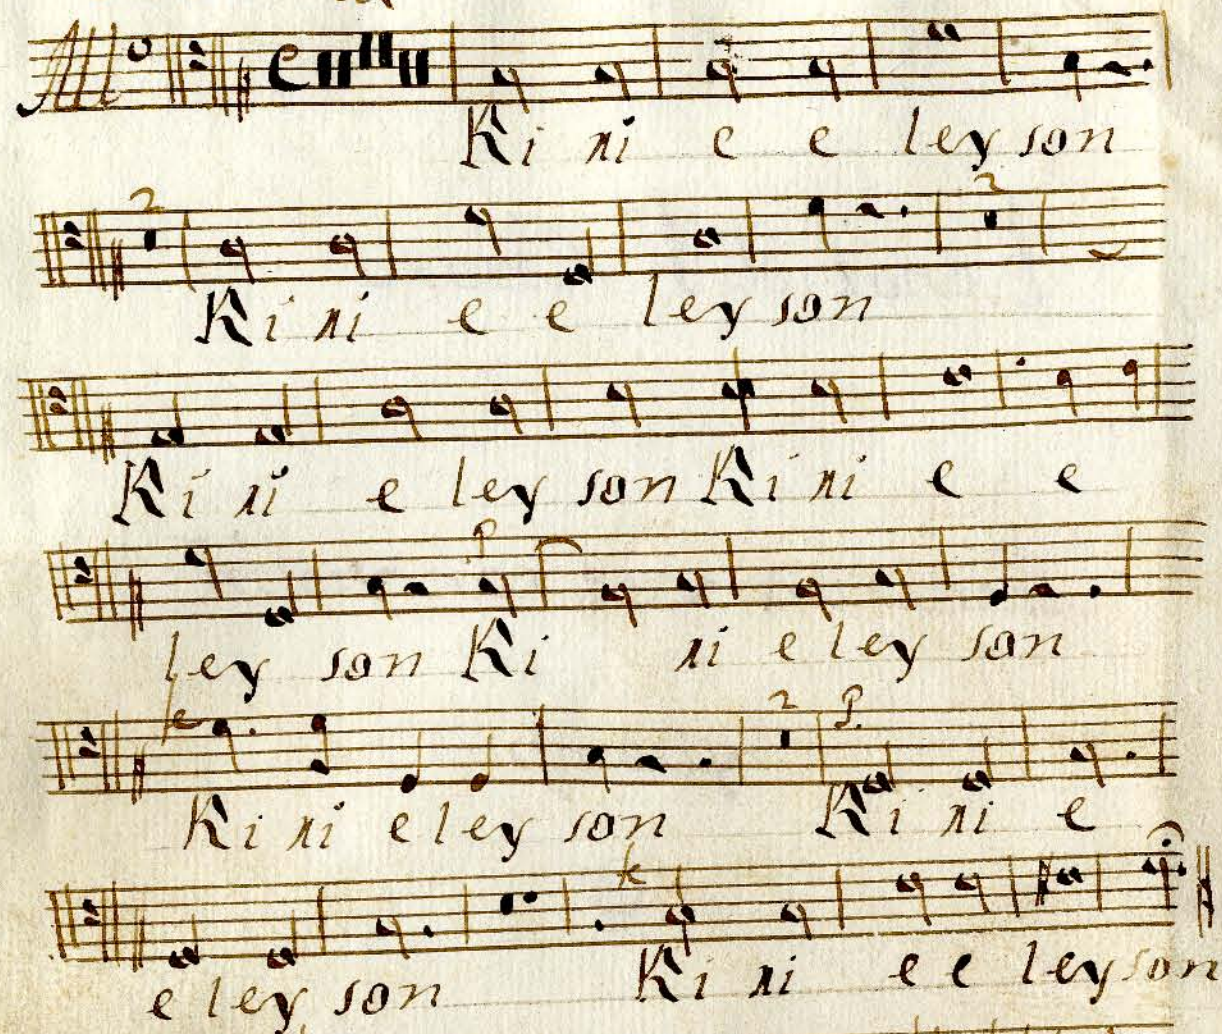 Ki ri e e ley son
2 2
Ki ri e e ley son
Ki ri e ley son Ki ri e e
P
ley son Ki ri e ley son
fe 2 P.
Ki ri e ley son Ki ri e
fe
e ley son Ki ri e e ley son